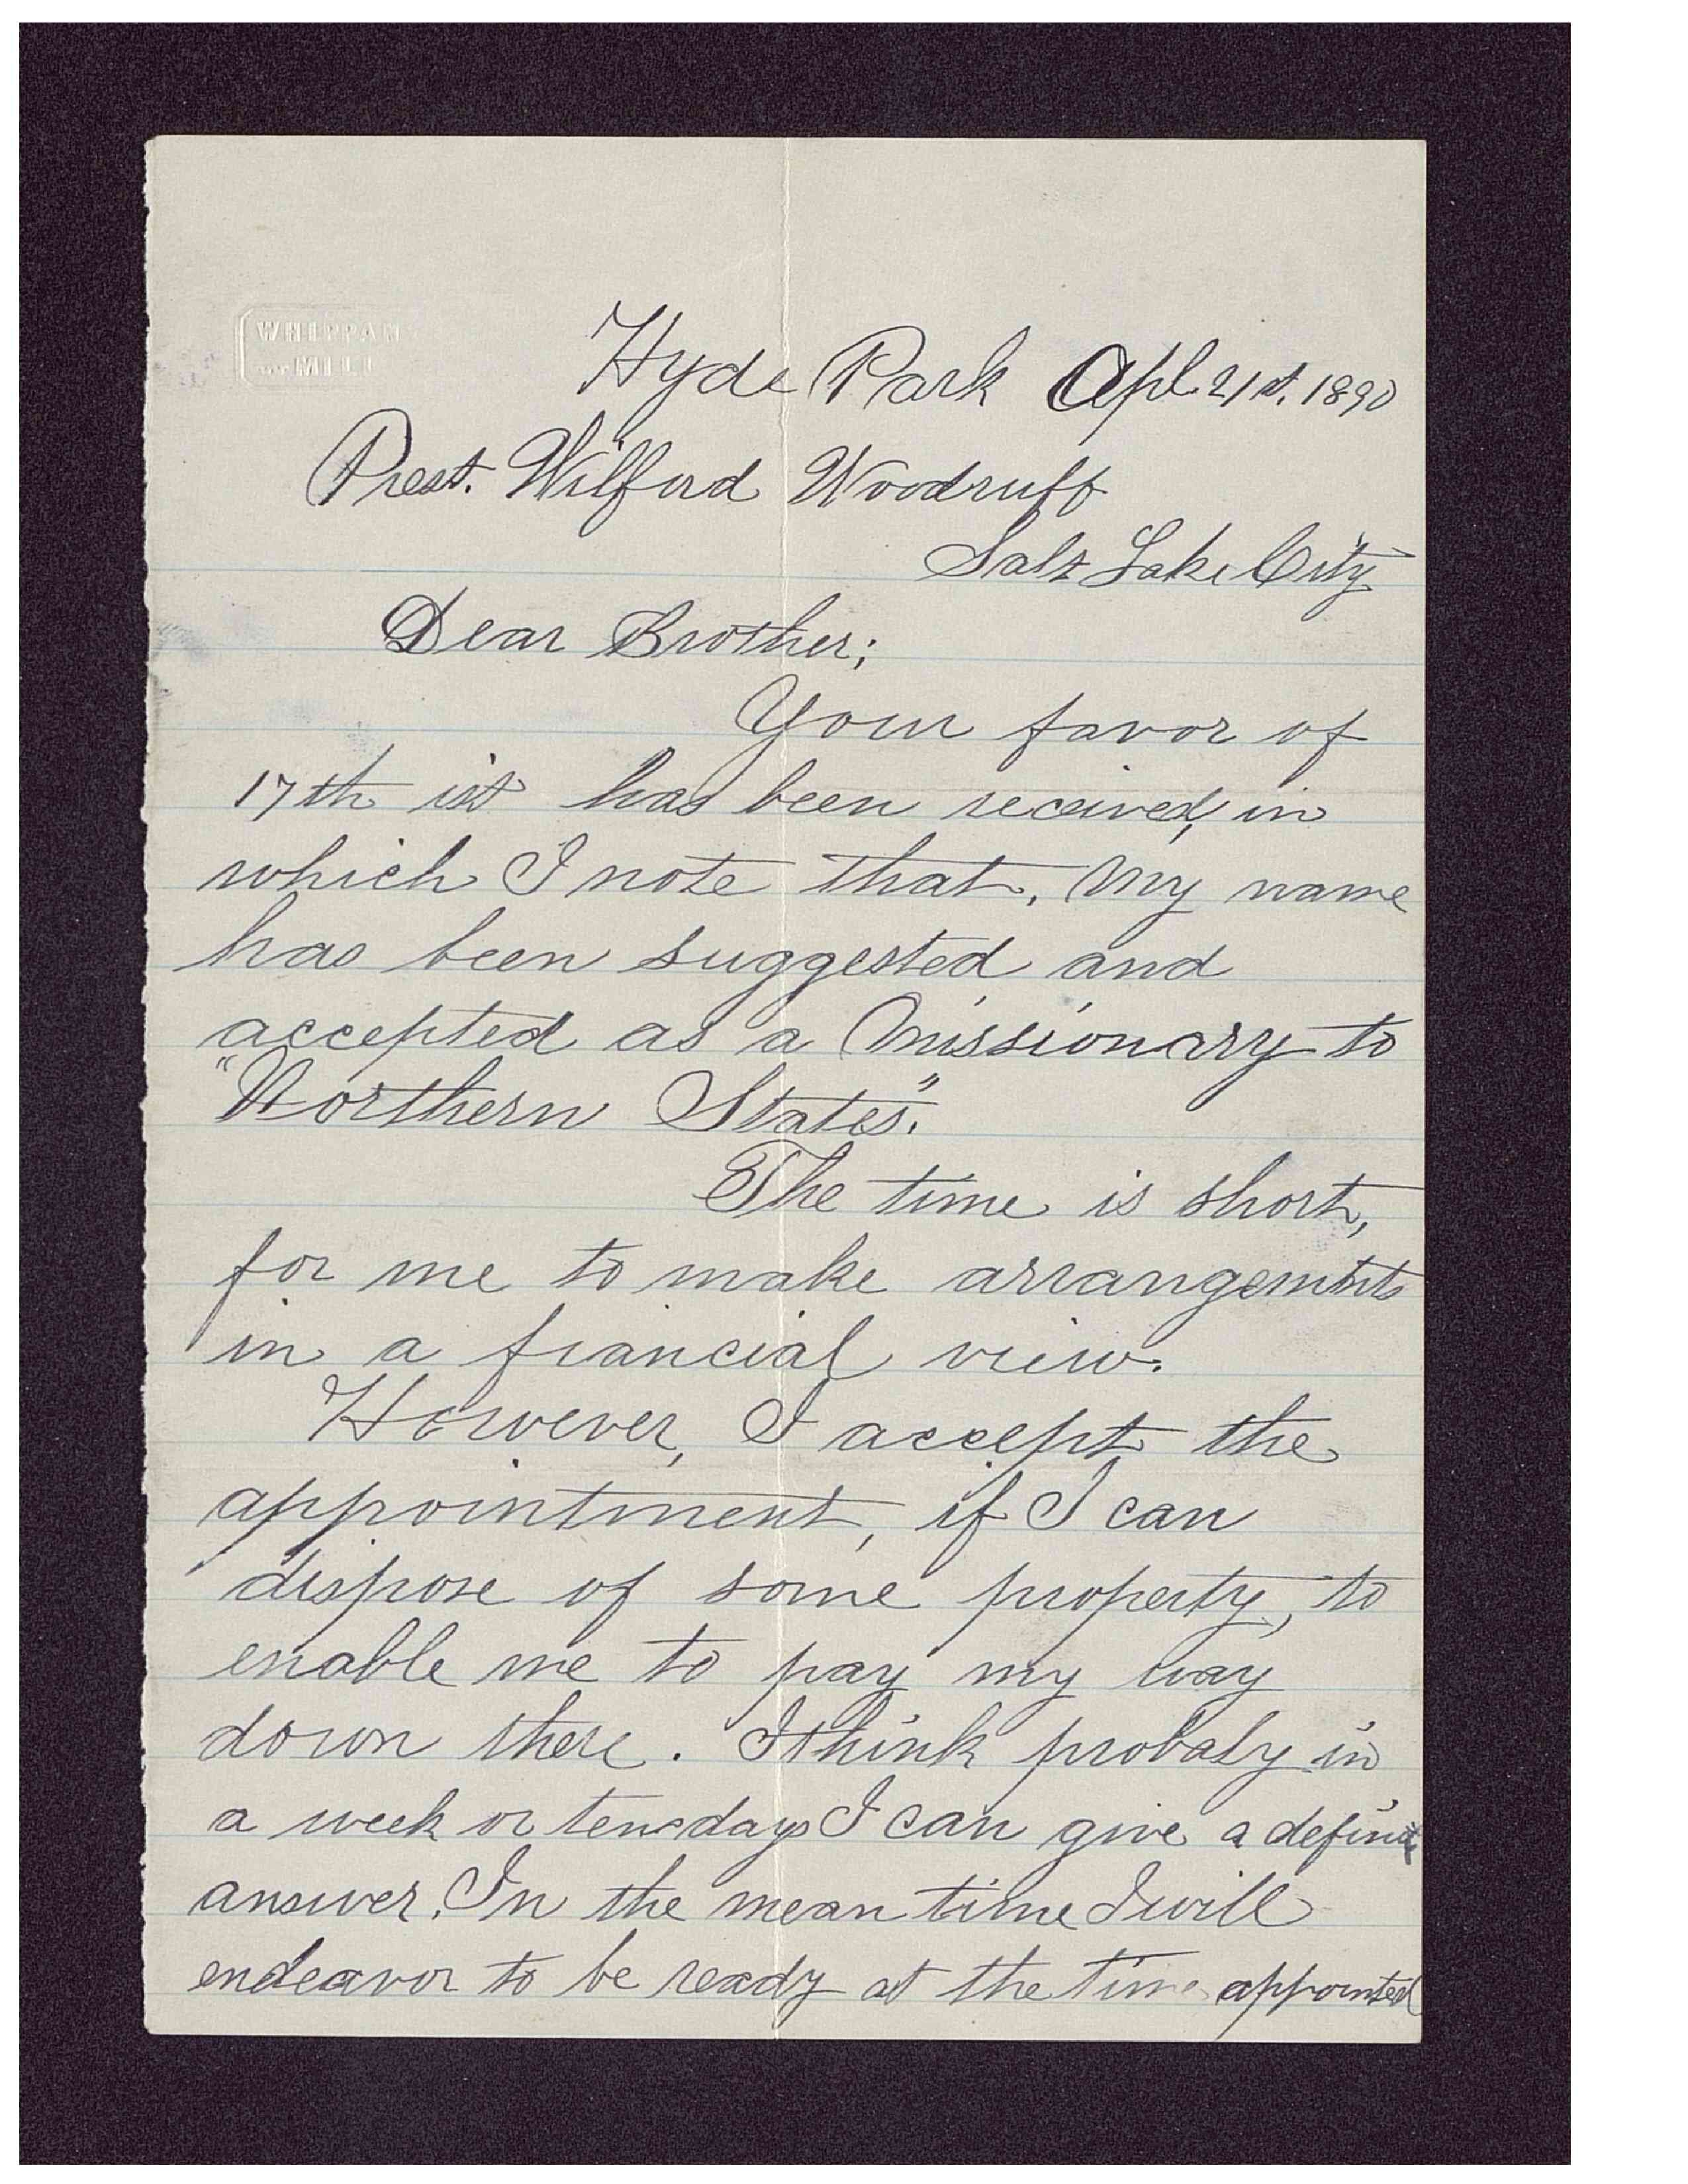 WHIPPANY
MILL
Hyde Park Apl. 21st. 1890
Prest. Wilford Woodruff
Salt Lake City
Dear Brother;
Your favor of
17th ist has been received, in
which I note that, My name
has been suggested and
accepted as a Missionary to
"Northern States".
The time is short,
for me to make arrangemtnts
in a fiancial view.
However, I accept the
appointment, if I can
dispose of some property, to
enable me to pay my way
down there. I think probaly in
a week or ten days I can give a definite
answer. In the mean time I will
endeavor to be ready at the time appointed